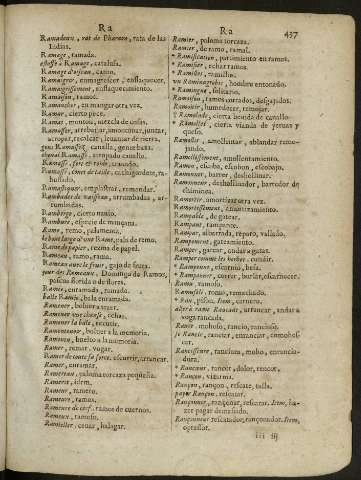 Ra
Ra
437
Ramadoux, rat de Pharaon, rata de las
Indias.
Ramage, ramada.
Ramage d'oiseau, canto.
Ramaigrir, enmagrescer, enflaquecer.
Ramaigrissement, enflaquecimiento.
Ramaison, ramon.
Ramancher, en mangar otra vez.
Ramar, cierto pece.
Ramas, monton, mezcla de cosas.
Ramasser, arrebañar, amontonar, juntar,
acopar, recoger,
gens Ramassez, canalla, gente baxa.
cheval Ramassé, arropado cavallo.
Ramasse, fort et roide, traundo.
Ramasse, court de taille, cachigordete, re-
Ramastiquer, emplastrar, remendar.
Ramberge, cierto navio.
Rambure, especie de mançana.
Rame, remo, palamenta.
le bout large d'une Rame, pala de remo.
Rame de papier, rezma de papel.
Rameau, ramo, rama.
Rameau avec le fruit, gajo de fruta.
jour des Rameaux, Domingo de Ramos,
pascua florida o de flores.
Ramée, enramada, ramada.
balle Ramée, bala enramada.
Ramener, bolver a traer.
Ramener une chose,
Ramener la balle,
Ramentevoir, bolver a la memoria.
Ramentu, buelto a la memoria.
Ramer, remar, vogar.
Ramer de toute sa force, escurrir, arrancar.
Ramer, enramar.
Ramereau, paloma torcaza pequeña.
Rameret, idem.
Rameur, remero.
Rameure, ramos.
Rameure de cerf, ramos de cuernos.
Rameux, ramoso.
Ramieller, cevar, halagar.
Ramier, paloma torcaza.
Ramier, de ramo, ramal.
* Ramification, partimiento en ramos.
* Ramifier, echar ramos.
* Ramillet, ramillo.
un Raminagrobis, hombre entonado.
* Ramingue, solitario.
Ramassus, ramos cortados, desgajados.
Ramoitir, humedecer, remojar.
* Ramolade, cierta vienda de cavallo.
* Ramollet, cierta vianda de yervas y
queso.
Ramollir, amollentar, ablandar remo-
jando.
Ramollissement, amollentamiento.
Ramon, escoba, escobon, escobajo.
Ramonner, barrer, deshollinar.
Ramonneur, deshollinador, barredor de
chiminea.
Ramortir, amortizar otra vez.
Ramortissement, amortizamiento.
Rampable, de gatear.
Rampant, rampante.
Rampar, albarrada, reparo, vallado.
Rampement, gateamiento.
Ramper, gatear, andar a gatas.
Ramper comme les herbes, cundir.
* Ramponne, escarnio, befa.
* Ramponner, burlar, escarnecer.
Ramu, ramoso.
* Ran, pison. Item, carnero.
aller à rame Rancade, arrancar, andar a
voga rancada.
Rance, mohoso, rancio, rancioso.
je Rancis, ranciar, enranciar, enmohes-
cer.
Rancissure, ranciura, moho, enrancia-
dura.
* Rancœur, rancor, dolor, rencor.
* Rancun, vizarma.
Rançon, rançon, rescate, talla.
payer Rançon, rescatar.
Rançonner, rançonar, rescatar. Item, ha-
zer pagar demasiado.
Rançonneur rescatador, rançonador. Item,
Iii iij